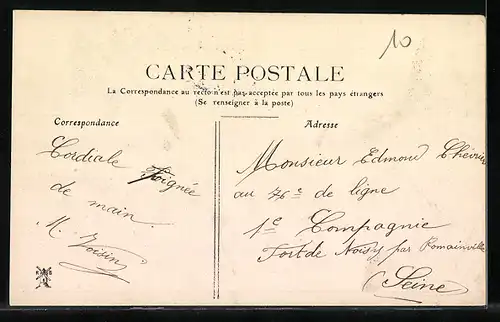 10
CARTE POSTALE
La Correspondance au recto n'est pas acceptée par tous les pays étrangers
(Se renseigner à la poste)
Correspondance
Cordiale Poignée
de main
M. Voisin
Adresse
Monsieur Edmond Chévrier
au 76e de ligne
1e Compagnie
Fort de Noisy par Romainville
Seine